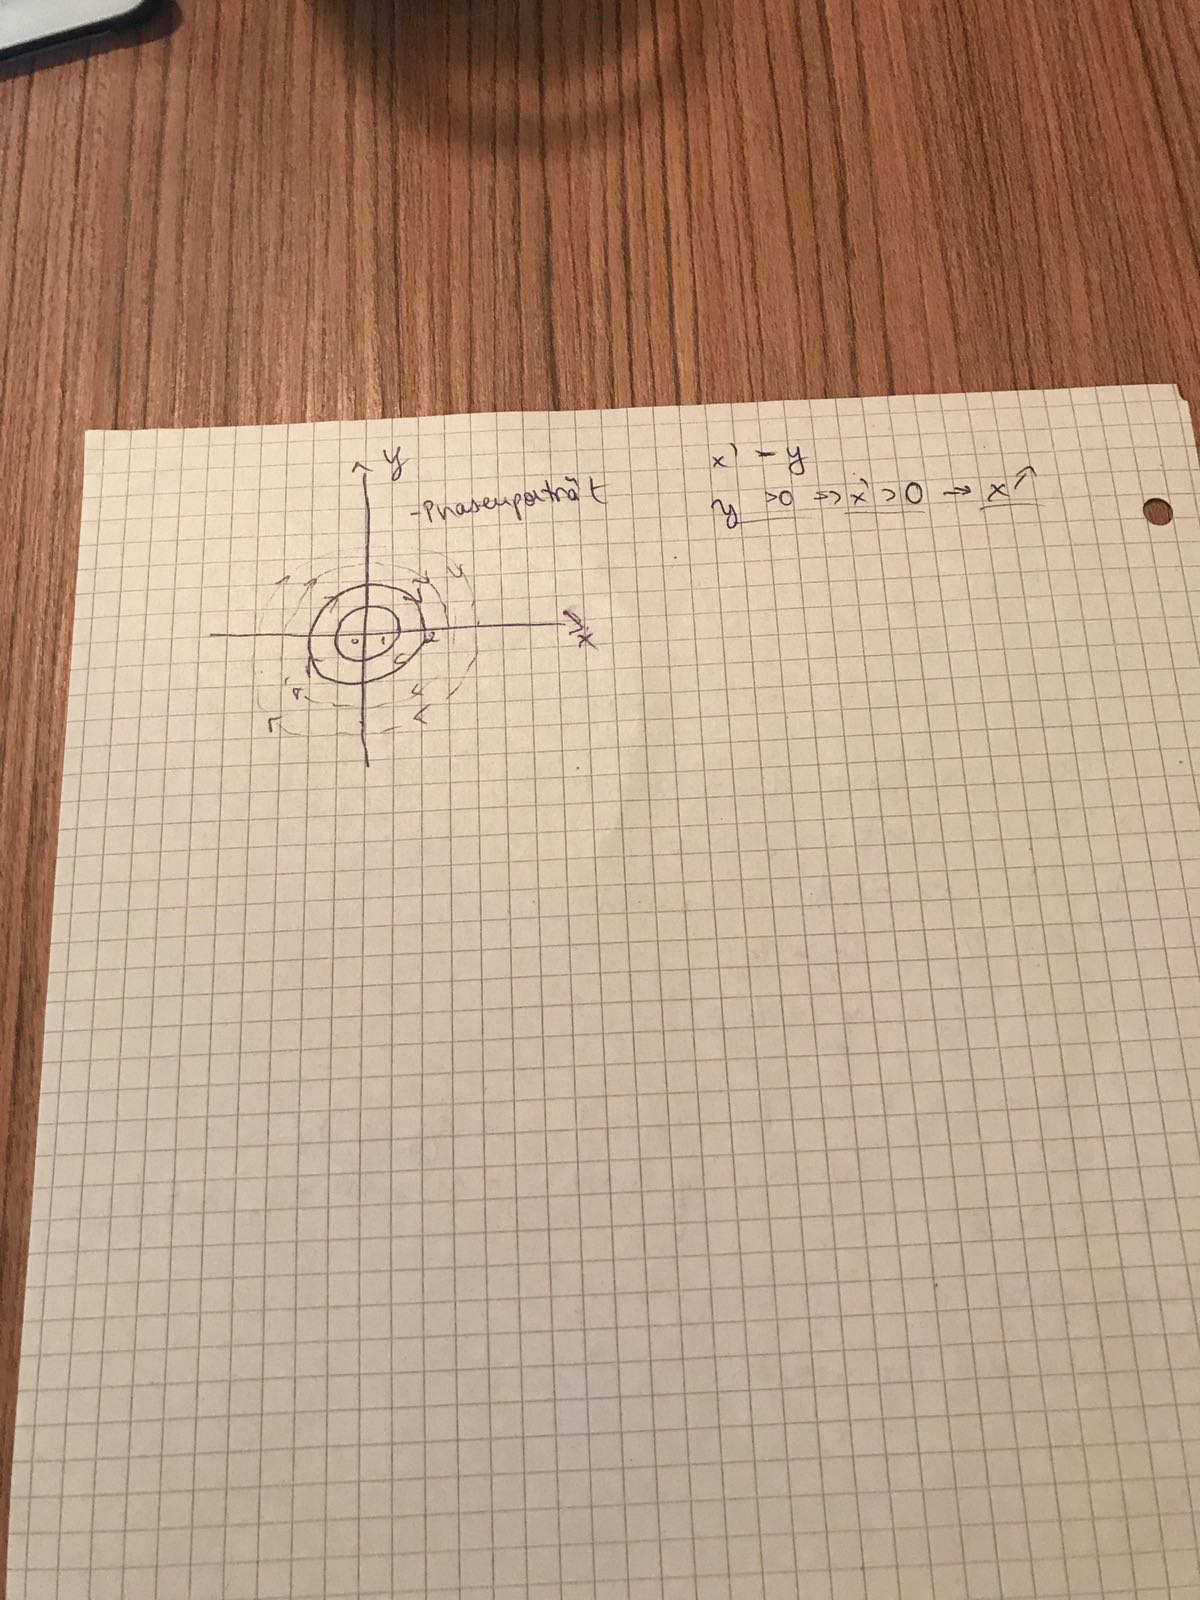 y
-Phasenporträt
x
0 1 2
x' = y
y >0 => x' >0 → x↗